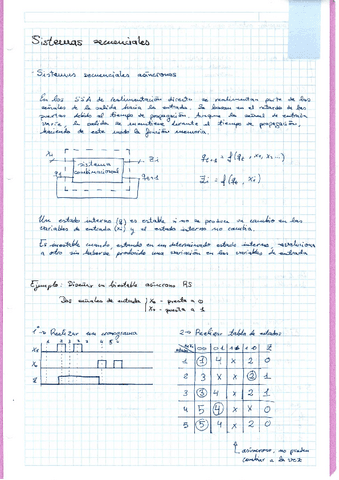 Sistemas secuenciales
- Sistemas secuenciales asíncronos
En los SSA de realimentación directa se realimentan parte de las
señales de la salida hacia la entrada. Se basan en el retardo de las
puertas debido al tiempo de propagación. Aunque la señal de entrada
varíe, la salida se mantiene durante el tiempo de propagación,
haciendo de este modo la función memoria.
xi sistema combinacional Zi
qt qt+1
qt+1 = f(qt, x0, x1...)
Zi = f(qt, xi)
Un estado interno (q) es estable si no se produce un cambio en las
variables de entrada (xi) y el estado interno no cambia.
Es inestable cuando estando en un determinado estado interno, evoluciona
a otro sin haberse producido una variación en las variables de entrada.
Ejemplo: Diseñar un biestable asíncrono RS
Dos señales de entrada
X0 - puesta a 0
X1 - puesta a 1
1º → Realizar un cronograma
X1
X0
Z
2 → Realizar tabla de estados
00 01 11 10 Z
1 1 4 x 2 0
2 3 x x 2 1
3 3 4 x 2 1
4 5 4 x x 0
5 5 4 x 2 0
asíncrono, no pueden
cambiar a la vez